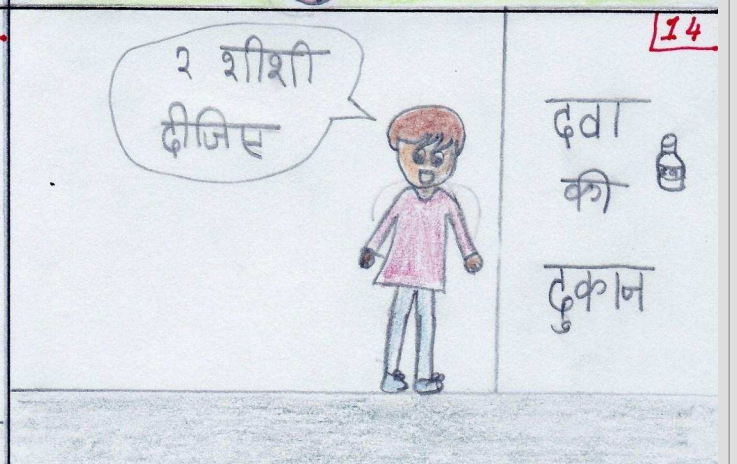 14
२ शीशी
दीजिए
दवा
की
दुकान